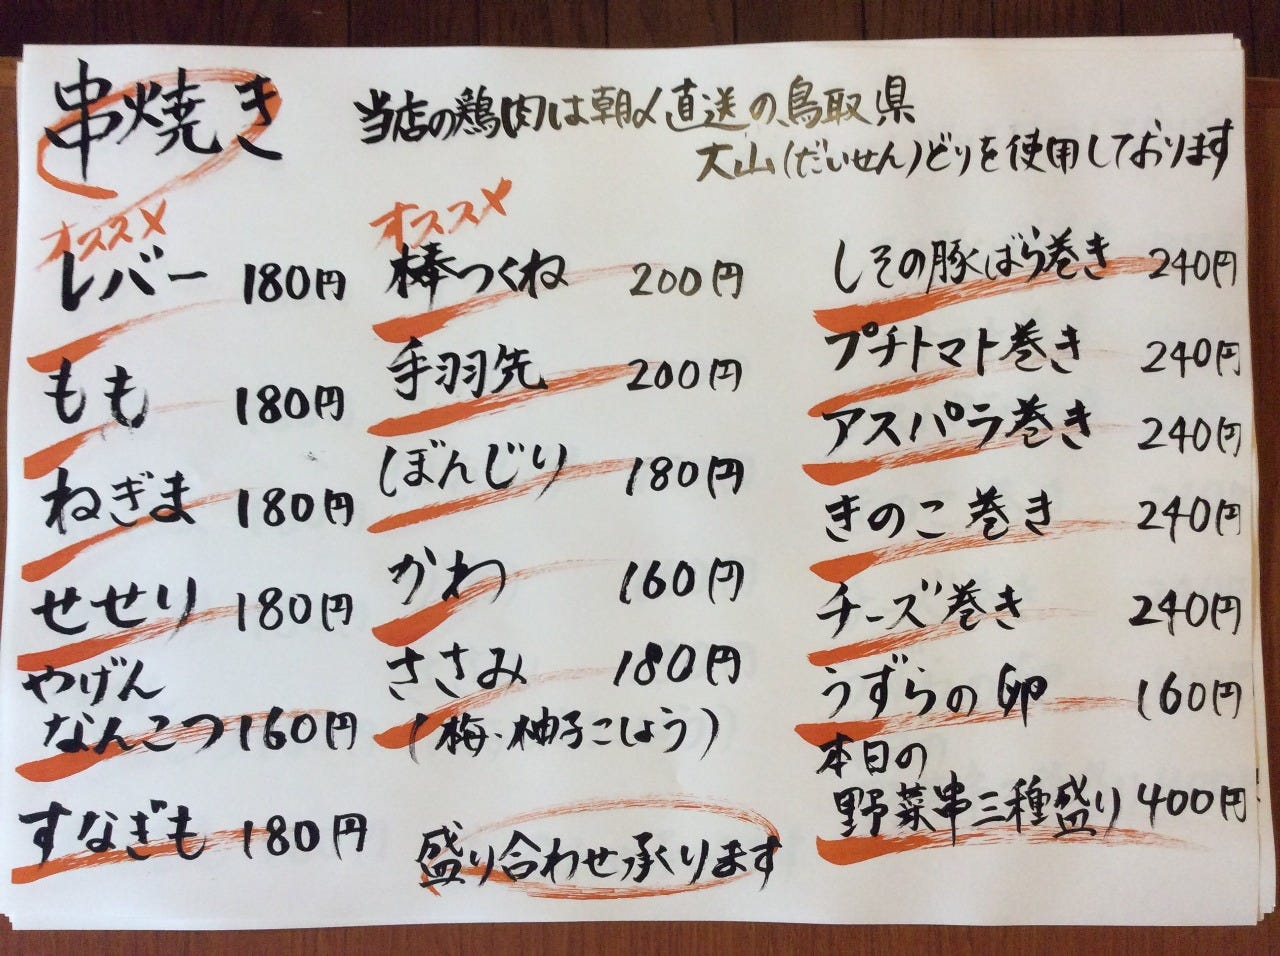 串焼き
当店の鶏肉は朝〆直送の鳥取県
大山(だいせん)どりを使用しております
オススメ
レバー 180円
もも 180円
ねぎま 180円
せせり 180円
やげん
なんこつ 160円
すなぎも 180円
オススメ
棒つくね 200円
手羽先 200円
ぼんじり 180円
かわ 160円
ささみ 180円
(梅・柚子こしょう)
盛り合わせ承ります
しその豚ばら巻き 240円
プチトマト巻き 240円
アスパラ巻き 240円
きのこ巻き 240円
チーズ巻き 240円
うずらの卵 160円
本日の
野菜串三種盛り 400円